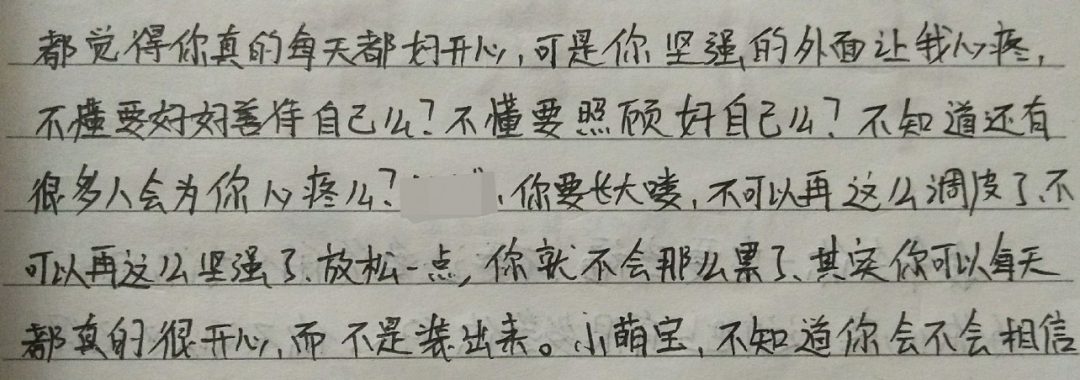 都觉得你真的每天都好开心,可是你坚强的外面让我心疼,
不懂要好好善待自己么?不懂要照顾好自己么?不知道还有
很多人会为你心疼么?、你要长大喽,不可以再这么调皮了、不
可以再这么坚强了、放松一点,你就不会那么累了、其实你可以每天
都真的很开心,而不是装出来。小萌宝,不知道你会不会相信